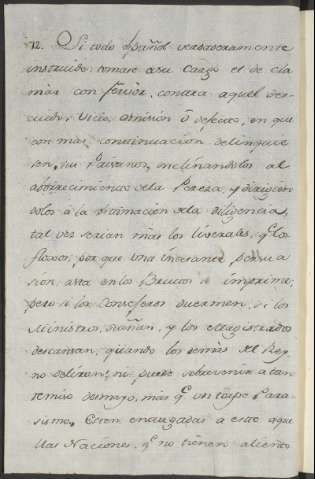 12. Si todo Español verdaderamente
instruido tomase a su Cargo el de cla
mar con fervor, contra aquel des
cuido, Vicio, omision ô defecto, en que
con mas continuacion delinquie
sen, sus Paisanos, inclinandolos al
aborrecimiento de la Pereza, y dirigien
dolos à la estimacion de la diligencia,
tal vez serian mas los liverales, qe los
floxos, por que una incesante persua
sion, asta en los Brutos se imprime;
pero si los Consejeros duermen, si los
Ministros, sueñan, y los Magistrados
descansan, quando los demas del Rey
no deliran, ni puede sobrevenir a tan
desmayo, mas qe un torpe Para
sismo. Esten enlazadas a este aque
llas Naciones, qe no tienen aliento